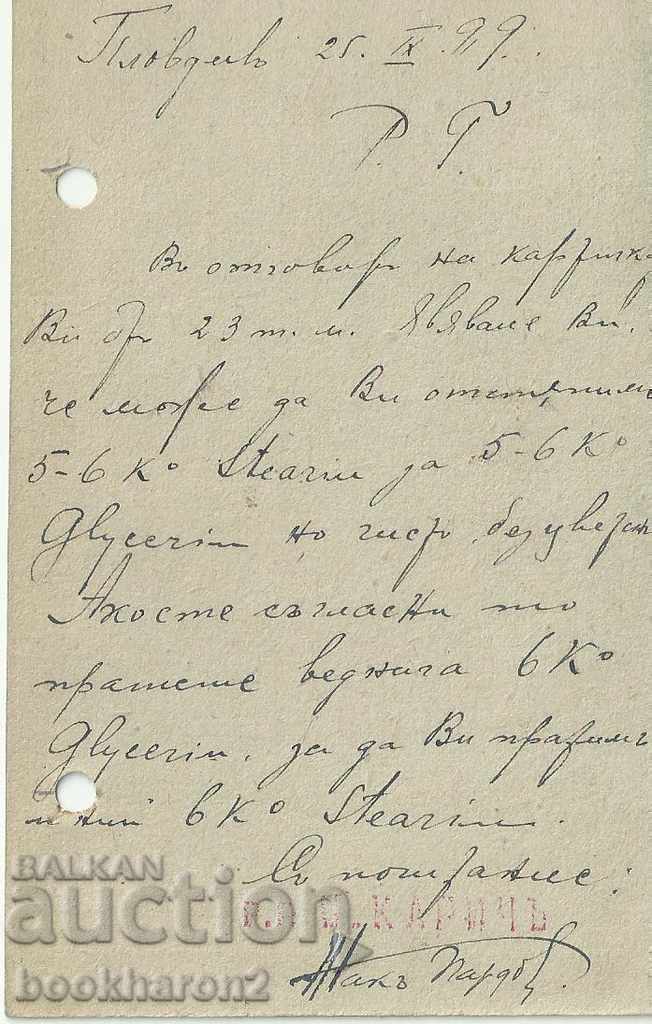 Пловдивъ 25. IX. 919.
Р. Г.
Въ отговоръ на картичка
Ви отъ 23 т. м. явяваме Ви,
че може да Ви отстѫпимъ
5-6 Ко Stearin за 5-6 Ко
Glycerin но чисто, безцветн
Ако сте съгласни то
пратете веднага 6 Ко
Glycerin, за да Ви пратимъ
и ний 6 Ко Stearin.
Съ почитание:
КАРИЧЪ
Жакъ Пардо
BALKAN
auction
bookharon2